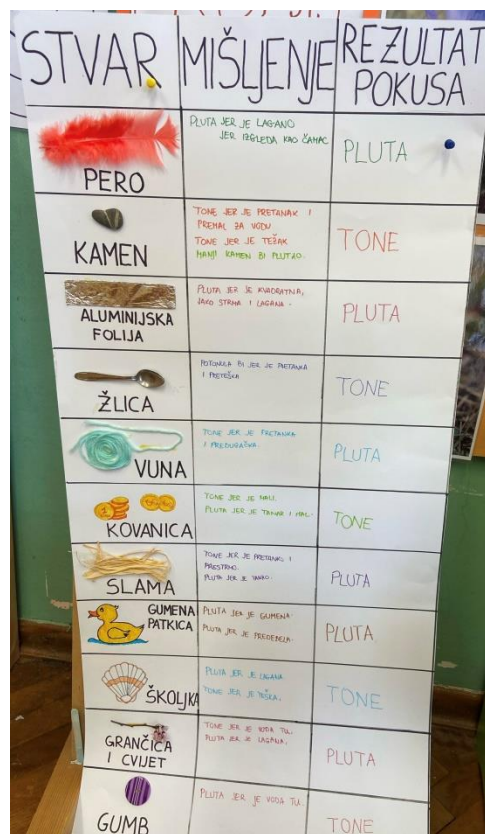 STVAR
MIŠLJENJE
REZULTAT
POKUSA
PERO
PLUTA JER JE LAGANO
JER IZGLEDA KAO ČAMAC
PLUTA
KAMEN
TONE JER JE PRETANAK I
PREMAL ZA VODU
TONE JER JE TEŽAK
MANJI KAMEN BI PLUTAO.
TONE
ALUMINIJSKA
FOLIJA
PLUTA JER JE KVADRATNA,
JAKO STRMA I LAGANA.
PLUTA
ŽLICA
POTONULA BI JER JE PRETANKA
I PRETEŠKA
TONE
VUNA
TONE JER JE PRETANKA
I PREDUGAČKA.
PLUTA
KOVANICA
TONE JER JE MALI.
PLUTA JER JE TANAK I MAL.
TONE
SLAMA
TONE JER JE PRETANKO I
PRESTRMO.
PLUTA JER JE
PLUTA
GUMENA
PATKICA
PLUTA JER JE GUMENA.
PLUTA JER JE PREDEBELA.
PLUTA
ŠKOLJKA
PLUTA JER JE LAGANA
TONE JER JE TEŠKA.
TONE
GRANČICA
I CVIJET
TONE JER JE VODA TU.
PLUTA JER JE LAGANA.
PLUTA
GUMB
PLUTA JER JE VODA TU.
TONE